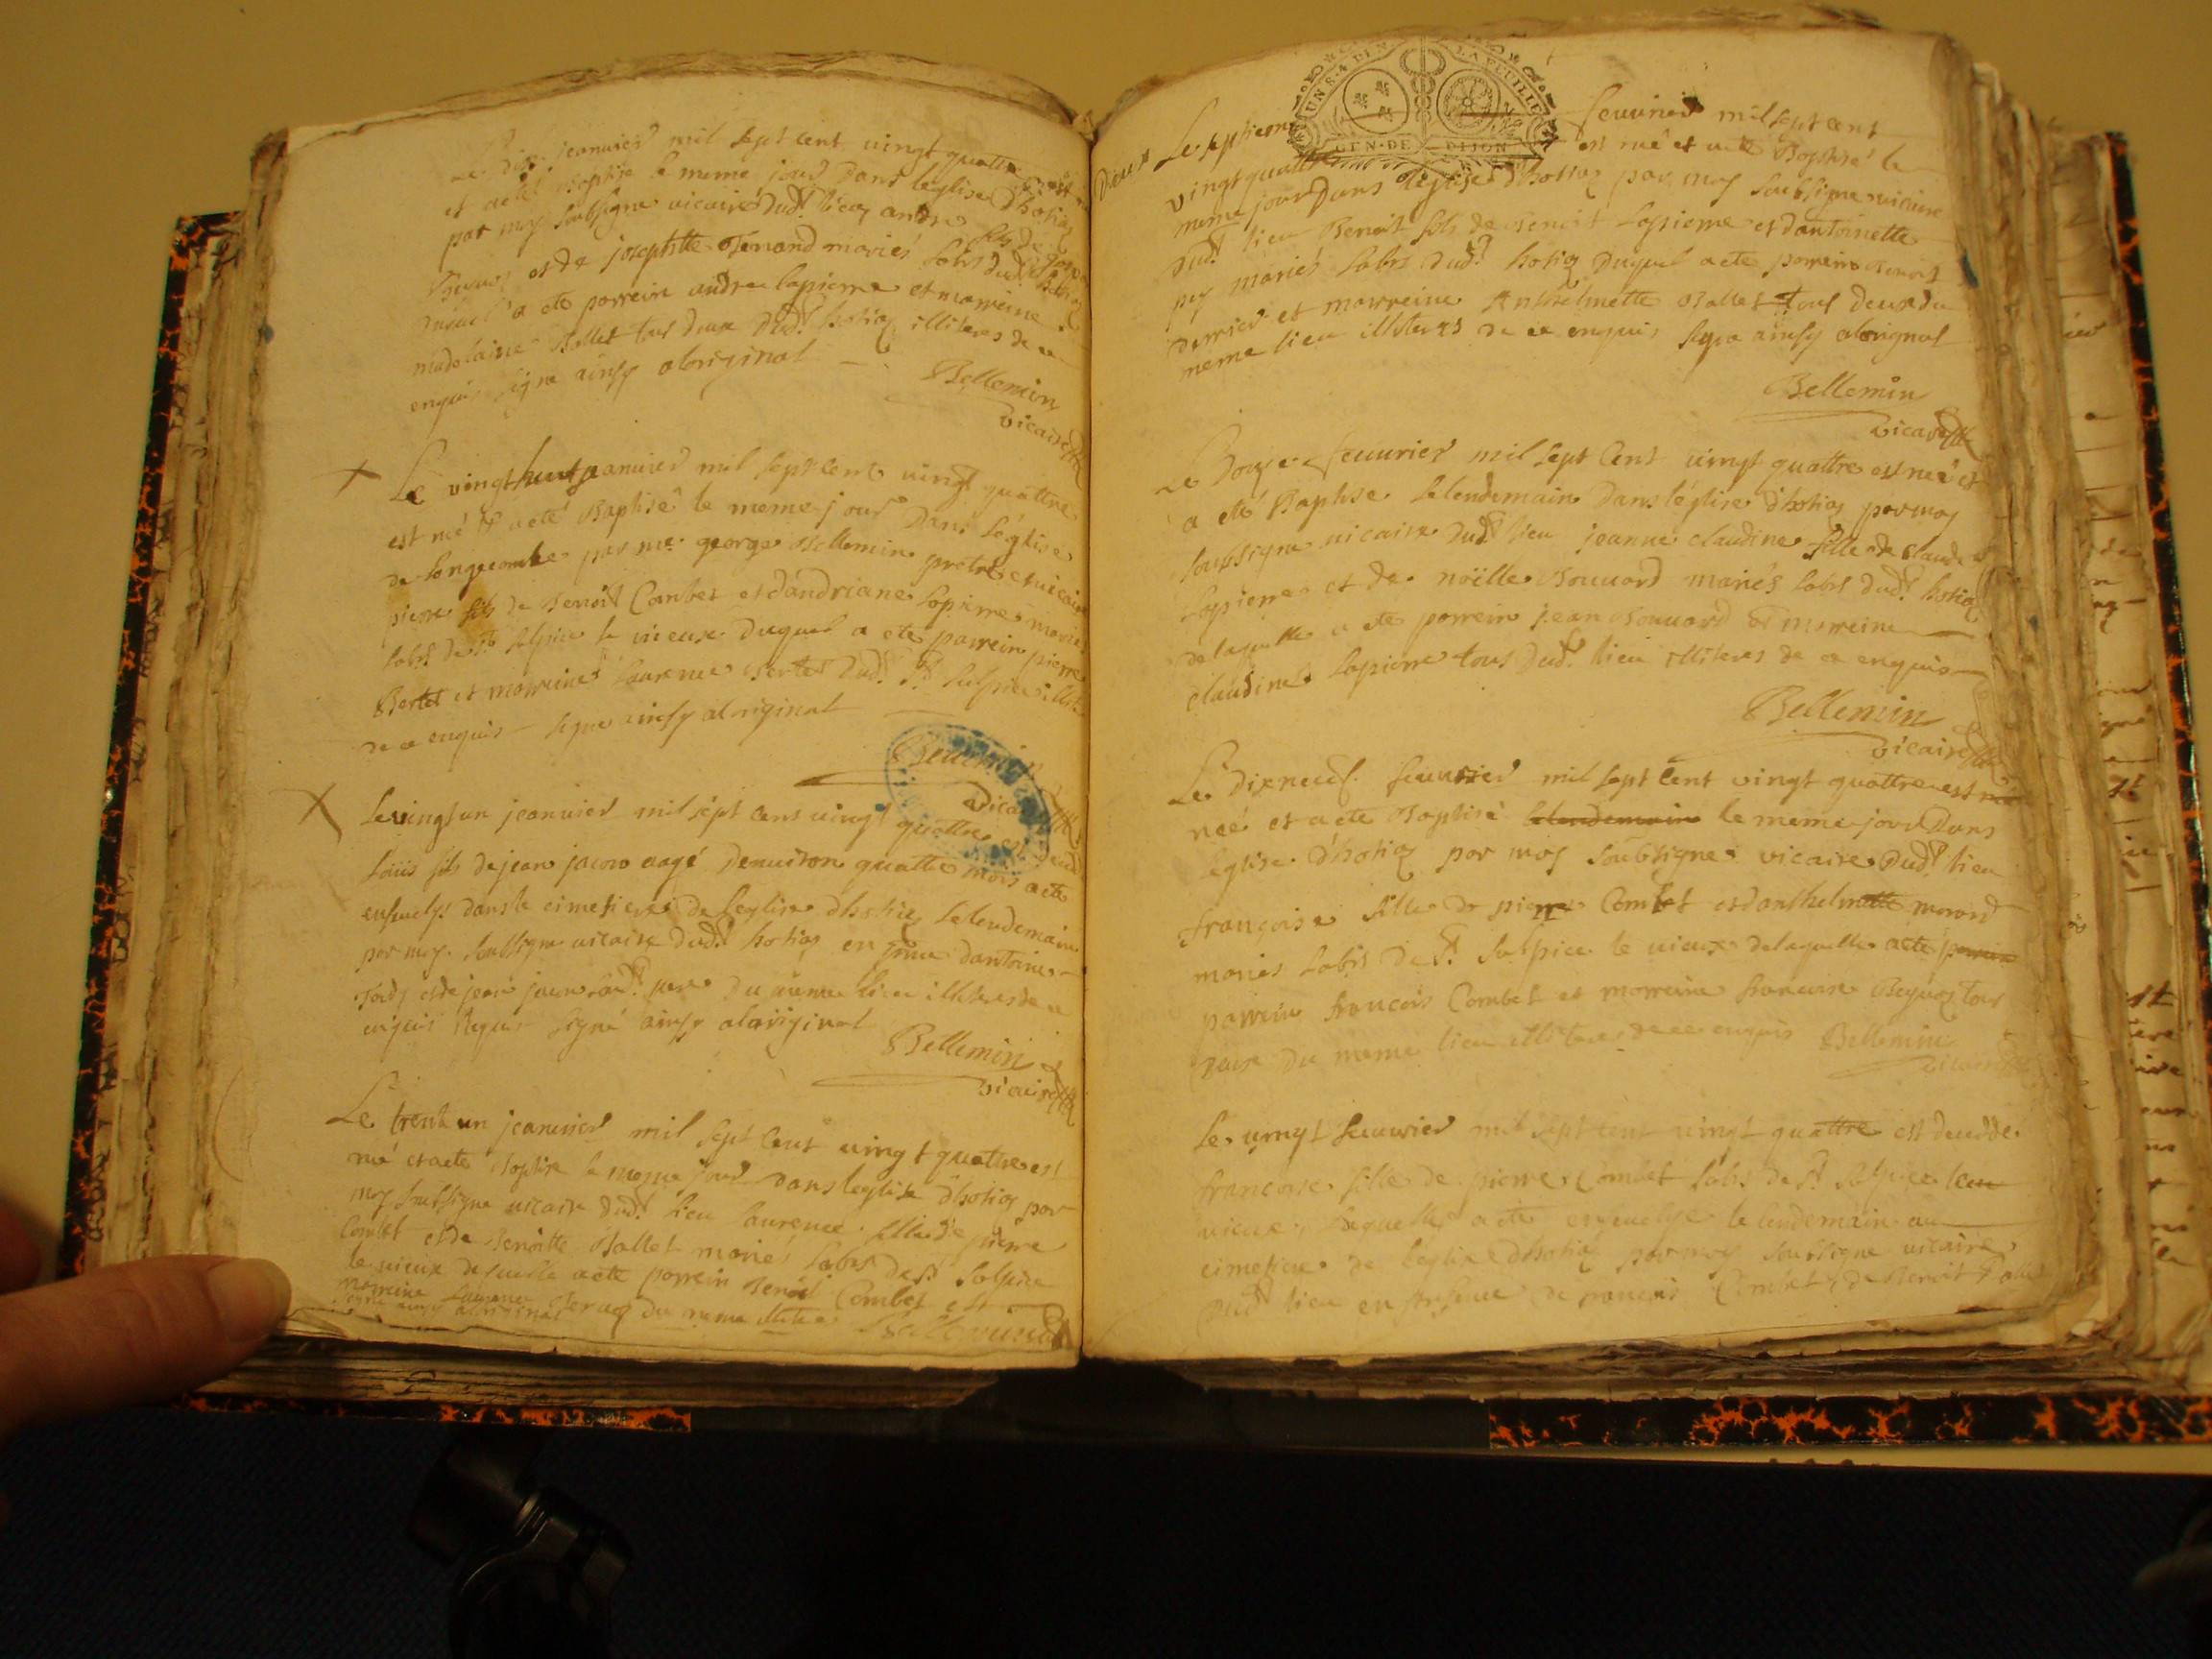 Le dix jeanvier mil sept cent vingt quattre est né
et a eté Baptise le meme jour dans leglise d'hotiaz
par moy soubsigne vicaire dud.t lieu andre fils de
et de josephtte mariés habts dud.t hotiaz
duquel a eté parrein andre lapierre et marreine
madelaine Ballet tous deux dud.t hotiaz illiteres de ce
enquis signe ainsy aloriginal
Bellemin
vicaire
Le vingt huit jeanvier mil sept cent vingt quattre
est né et a eté Baptisé le meme jour dans l'église
de longecombe par me george Bellemin pretre et vicaire
pierre fils de Benoit Combet et dandriane lapierre mariés
habts de St Sulpice le vieux duquel a eté parrein pierre
Bertet et marreine laurence Bertet dud.t St Sulpice illit.
de ce enquis signe ainsy aloriginal
Bellemin
vicaire
Le vingt un jeanvier mil sept cens vingt quattre est decedé
loüis fils de jean aagé denuiron quattre mois a eté
enseuelys dans le cimetiere de leglise dhotiaz le lendemain
par moy soubsigne vicaire dud.t hotiaz en dantoine
et de jean pere du meme lieu illiteres de ce
enquis signé ainsy aloriginal
Bellemin
vicaire
Le trent un jeanvier mil sept cent vingt quattre est
né et a eté Baptise le meme jour dans leglise dhotiaz par
moy soubsigne vicaire dud.t lieu laurence fille de pierre
Combet et de Benoitte Ballet mariés habts de St Sulpice
le vieux de laquelle a eté parrein Benoit Combet et
marreine laurence du meme
signe ainsy aloriginal Bellemin
Le septieme feuurier mil sept cent
vingt quattre est né et a eté Baptisé le
meme jour dans leglise d'hotiaz par moy soubsigne vicaire
dud.t lieu Benoit fils de Benoit lapierre et dantoinette
mariés habts dud.t hotiaz duquel a eté parrein Benoit
et marreine Anthelmette Ballet tous deux du
meme lieu illiteres de ce enquis ainsy aloriginal
Bellemin
vicaire
Le Douze feuurier mil sept cent vingt quattre est neé et
a eté Baptise le lendemain dans l'église d'hotiaz par moy
soubsigne vicaire dud.t lieu jeanne claudine fille de claude
lapierre et de noëlle Bouuard mariés habts dud.t hotiaz
de laquelle a eté parrein jean Bouuard et marreine
claudine lapierre tous dud.t lieu illiteres de ce enquis
Bellemin
vicaire
Le dixneuf feuurier mil sept cent vingt quattre est
neé et a eté Baptisé le lendemain le meme jour dans
leglise d'hotiaz par moy soubsigne vicaire dud.t lieu
françoise fille de pierre Combet et danthelmette
mariés habts de St Sulpice le vieux de laquelle a eté parrein
parrein francois Combet et marreine francoise tous
deux du meme lieu illiteres de ce enquis Bellemin
vicaire
Le vingt feuurier mil sept cent vingt quattre est decedde
francoise fille de pierre Combet habts de St Sulpice le
vieux laquelle a eté enseuelye le lendemain au
cimetiere de leglise d'hotiaz par moy soubsigne vicaire
dud.t lieu en presence de francois Combet de Benoit
UN S. 4 DEN LA FEUILLE
GEN. DE DIJON